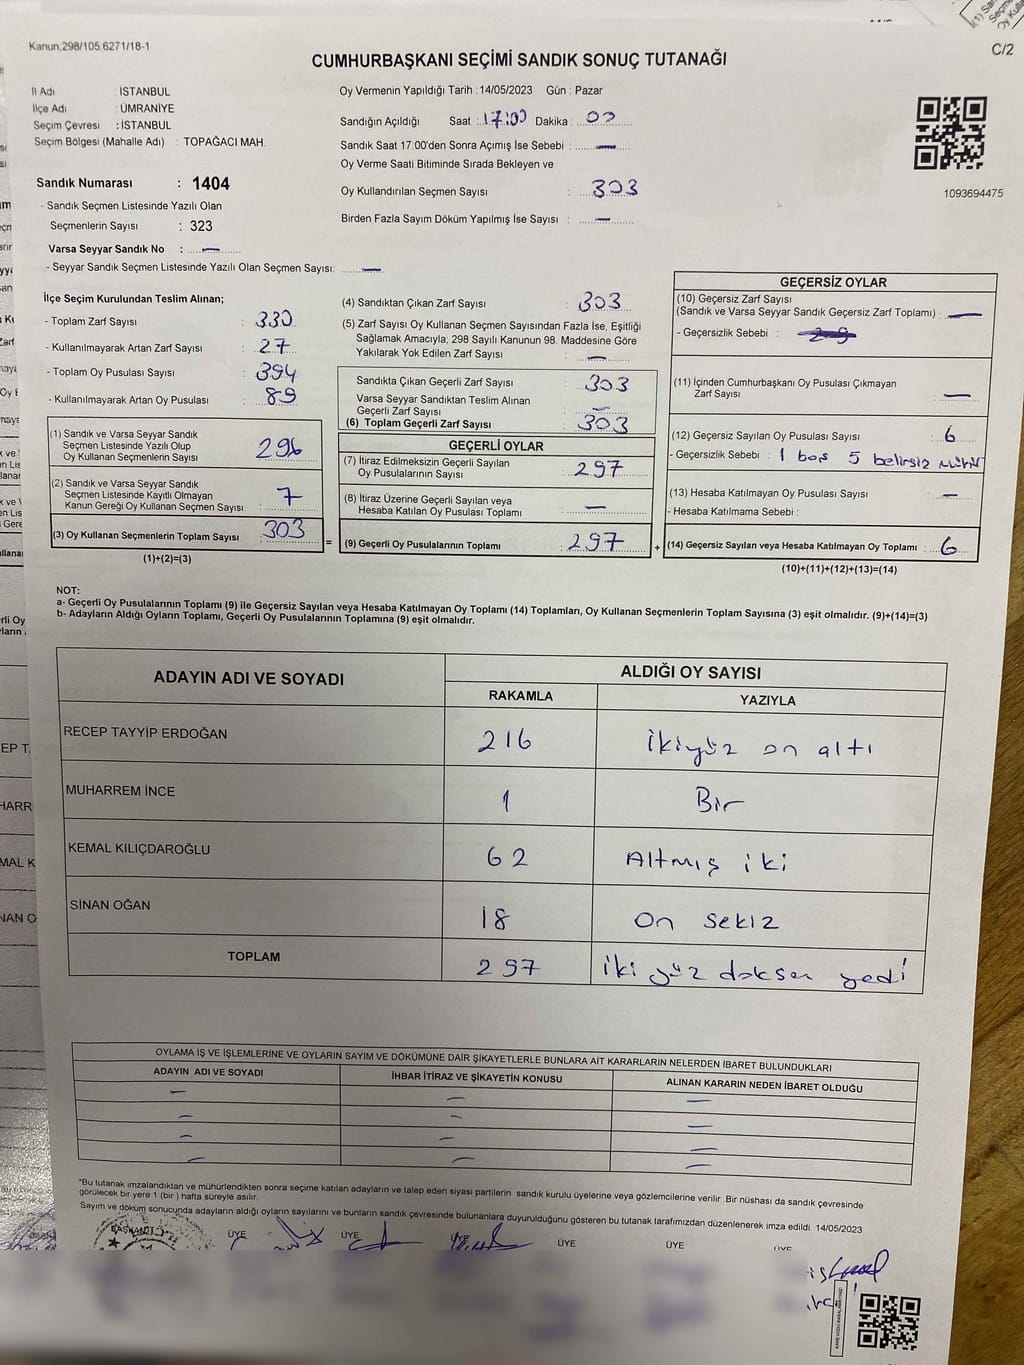 Kanun,298/105.6271/18-1
C/2
CUMHURBAŞKANI SEÇİMİ SANDIK SONUÇ TUTANAĞI
İl Adı : İSTANBUL
İlçe Adı : ÜMRANİYE
Seçim Çevresi : İSTANBUL
Seçim Bölgesi (Mahalle Adı) : TOPAĞACI MAH.
Sandık Numarası : 1404
- Sandık Seçmen Listesinde Yazılı Olan
Seçmenlerin Sayısı : 323
Varsa Seyyar Sandık No : —
- Seyyar Sandık Seçmen Listesinde Yazılı Olan Seçmen Sayısı: —
Oy Vermenin Yapıldığı Tarih : 14/05/2023 Gün : Pazar
Sandığın Açıldığı Saat : 17:00 Dakika : 00
Sandık Saat 17:00'den Sonra Açımış İse Sebebi : —
Oy Verme Saati Bitiminde Sırada Bekleyen ve
Oy Kullandırılan Seçmen Sayısı : 303
Birden Fazla Sayım Döküm Yapılmış İse Sayısı : —
1093694475
İlçe Seçim Kurulundan Teslim Alınan;
- Toplam Zarf Sayısı : 330
- Kullanılmayarak Artan Zarf Sayısı : 27
- Toplam Oy Pusulası Sayısı : 394
- Kullanılmayarak Artan Oy Pusulası : 89
(1) Sandık ve Varsa Seyyar Sandık
Seçmen Listesinde Yazılı Olup
Oy Kullanan Seçmenlerin Sayısı : 296
(2) Sandık ve Varsa Seyyar Sandık
Seçmen Listesinde Kayıtlı Olmayan
Kanun Gereği Oy Kullanan Seçmen Sayısı : 7
(3) Oy Kullanan Seçmenlerin Toplam Sayısı : 303
(1)+(2)=(3)
(4) Sandıktan Çıkan Zarf Sayısı : 303
(5) Zarf Sayısı Oy Kullanan Seçmen Sayısından Fazla İse, Eşitliği
Sağlamak Amacıyla, 298 Sayılı Kanunun 98. Maddesine Göre
Yakılarak Yok Edilen Zarf Sayısı : —
Sandıkta Çıkan Geçerli Zarf Sayısı : 303
Varsa Seyyar Sandıktan Teslim Alınan
Geçerli Zarf Sayısı : —
(6) Toplam Geçerli Zarf Sayısı : 303
GEÇERLİ OYLAR
(7) İtiraz Edilmeksizin Geçerli Sayılan
Oy Pusulalarının Sayısı : 297
(8) İtiraz Üzerine Geçerli Sayılan veya
Hesaba Katılan Oy Pusulası Toplamı : —
= (9) Geçerli Oy Pusulalarının Toplamı : 297
GEÇERSİZ OYLAR
(10) Geçersiz Zarf Sayısı
(Sandık ve Varsa Seyyar Sandık Geçersiz Zarf Toplamı) : —
- Geçersizlik Sebebi :
(11) İçinden Cumhurbaşkanı Oy Pusulası Çıkmayan
Zarf Sayısı : —
(12) Geçersiz Sayılan Oy Pusulası Sayısı : 6
- Geçersizlik Sebebi : 1 boş 5 belirsiz mühür
(13) Hesaba Katılmayan Oy Pusulası Sayısı : —
- Hesaba Katılmama Sebebi :
+ (14) Geçersiz Sayılan veya Hesaba Katılmayan Oy Toplamı : 6
(10)+(11)+(12)+(13)=(14)
NOT:
a- Geçerli Oy Pusulalarının Toplamı (9) ile Geçersiz Sayılan veya Hesaba Katılmayan Oy Toplamı (14) Toplamları, Oy Kullanan Seçmenlerin Toplam Sayısına (3) eşit olmalıdır. (9)+(14)=(3)
b- Adayların Aldığı Oyların Toplamı, Geçerli Oy Pusulalarının Toplamına (9) eşit olmalıdır.
ADAYIN ADI VE SOYADI ALDIĞI OY SAYISI
RAKAMLA YAZIYLA
RECEP TAYYİP ERDOĞAN 216 ikiyüz on altı
MUHARREM İNCE 1 Bir
KEMAL KILIÇDAROĞLU 62 Altmış iki
SİNAN OĞAN 18 on sekiz
TOPLAM 297 iki yüz doksan yedi
OYLAMA İŞ VE İŞLEMLERİNE VE OYLARIN SAYIM VE DÖKÜMÜNE DAİR ŞİKAYETLERLE BUNLARA AİT KARARLARIN NELERDEN İBARET BULUNDUKLARI
ADAYIN ADI VE SOYADI İHBAR İTİRAZ VE ŞİKAYETİN KONUSU ALINAN KARARIN NEDEN İBARET OLDUĞU
— — —
— — —
— — —
— — —
*Bu tutanak imzalandıktan ve mühürlendikten sonra seçime katılan adayların ve talep eden siyasi partilerin sandık kurulu üyelerine veya gözlemcilerine verilir. Bir nüshası da sandık çevresinde
görülecek bir yere 1 (bir ) hafta süreyle asılır.
Sayım ve döküm sonucunda adayların aldığı oyların sayılarını ve bunların sandık çevresinde bulunanlara duyurulduğunu gösteren bu tutanak tarafımızdan düzenlenerek imza edildi. 14/05/2023
BAŞKAN ÜYE ÜYE ÜYE ÜYE ÜYE ÜYE